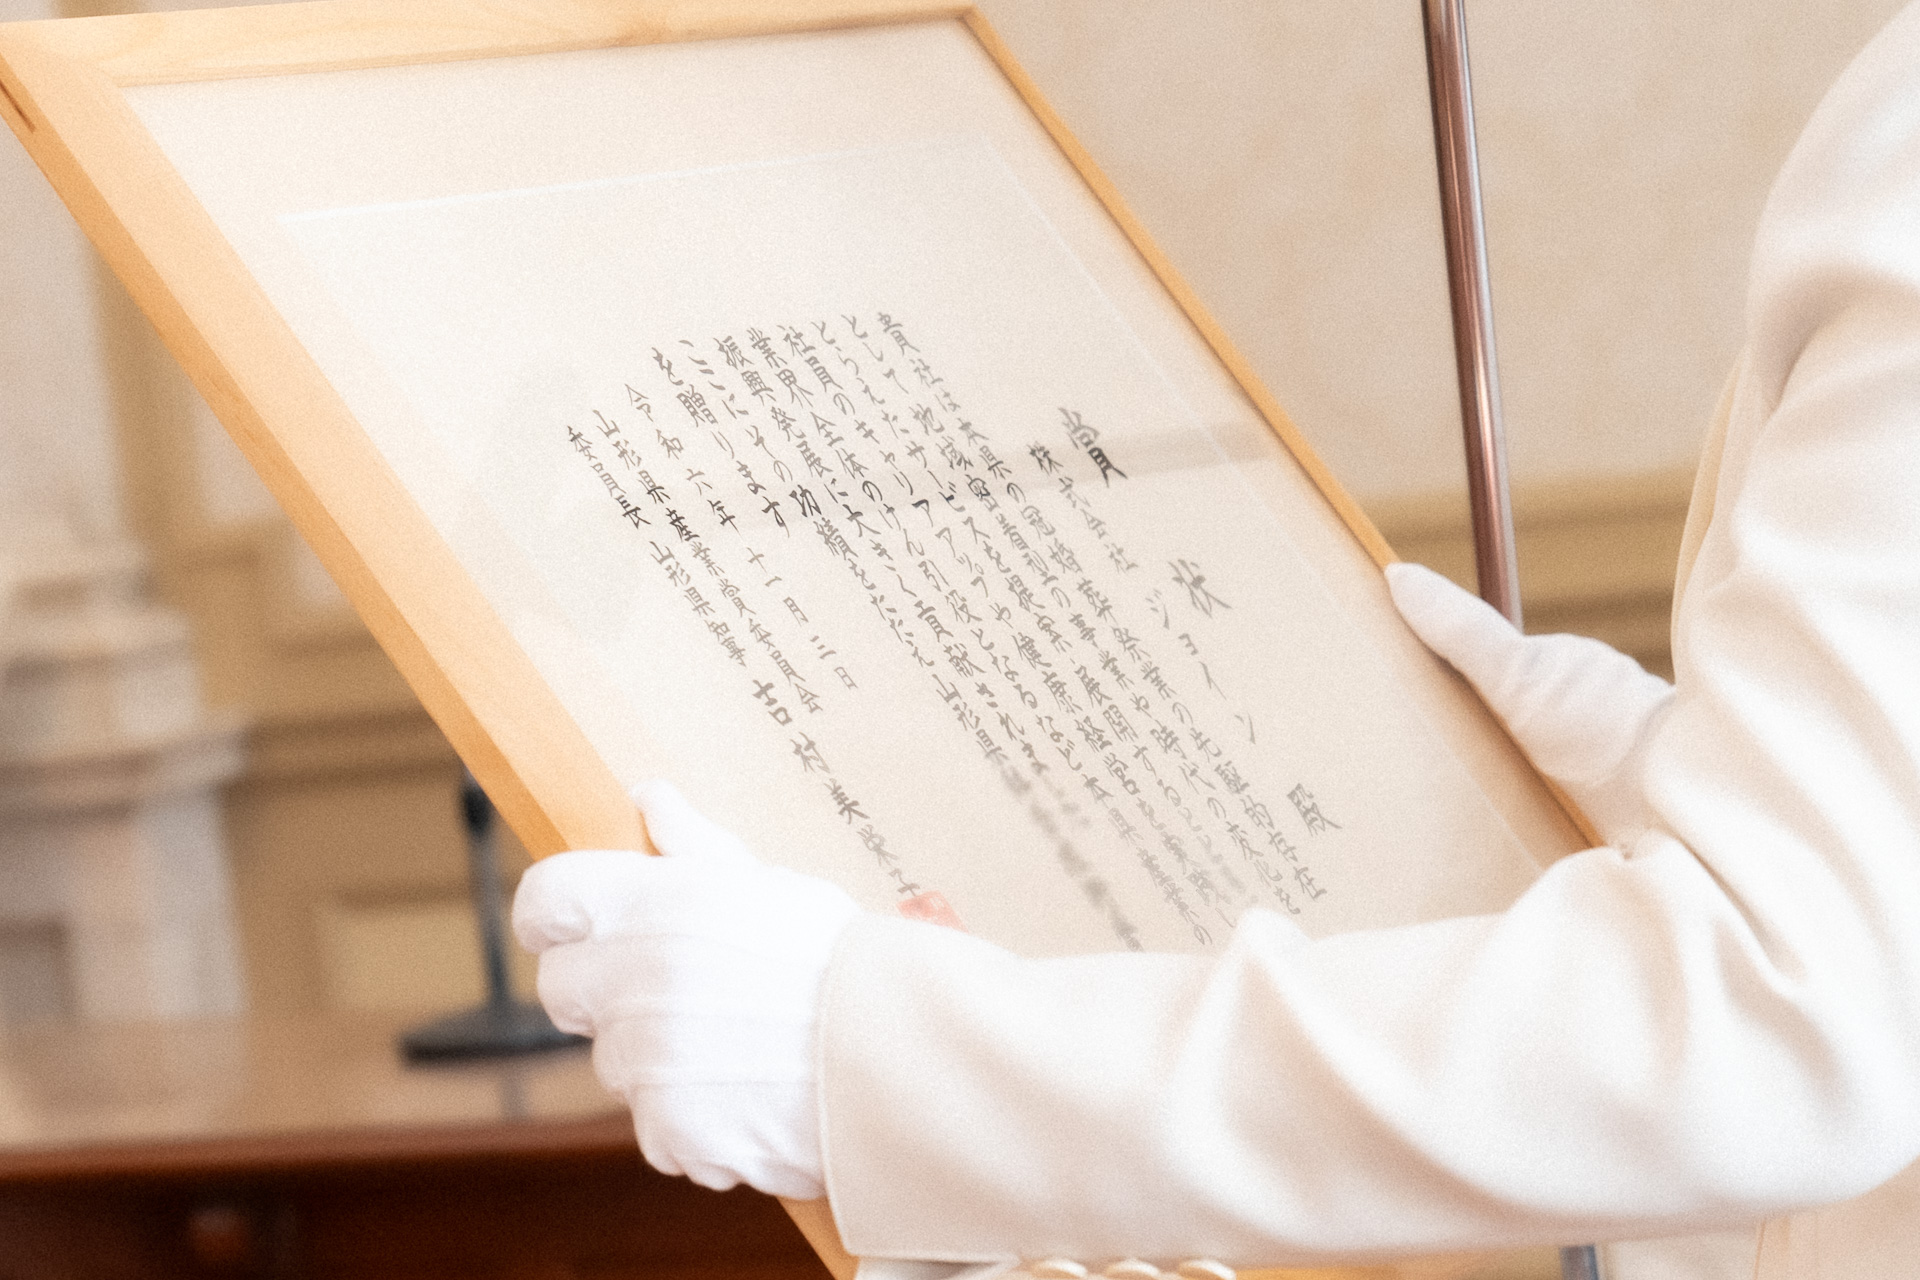 賞状
株式会社 ジョイン 殿
貴社は本県の冠婚葬祭業の先駆的存在
として地域密着型の事業や時代の変化を
とらえたサービスを提案・展開すると
社員のキャリアアップや健康経営を実践し
業界全体のけん引役となるなど本県産業の
振興発展に大きく貢献されま
ここにその功績をたたえ山形県
を贈ります
令和六年十一月三日
山形県産業賞委員会
委員長 山形県知事 吉村美栄子